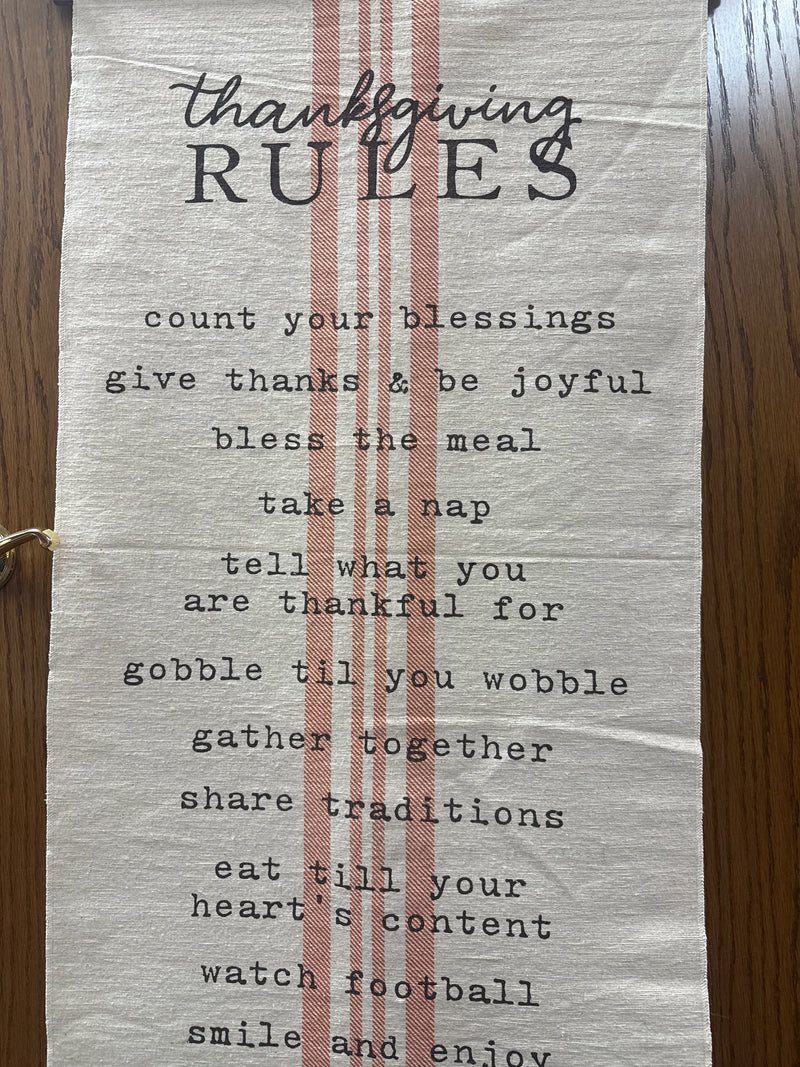 thanksgiving
RULES
count your blessings
give thanks & be joyful
bless the meal
take a nap
tell what you
are thankful for
gobble til you wobble
gather together
share traditions
eat till your
heart's content
watch football
smile and enjoy